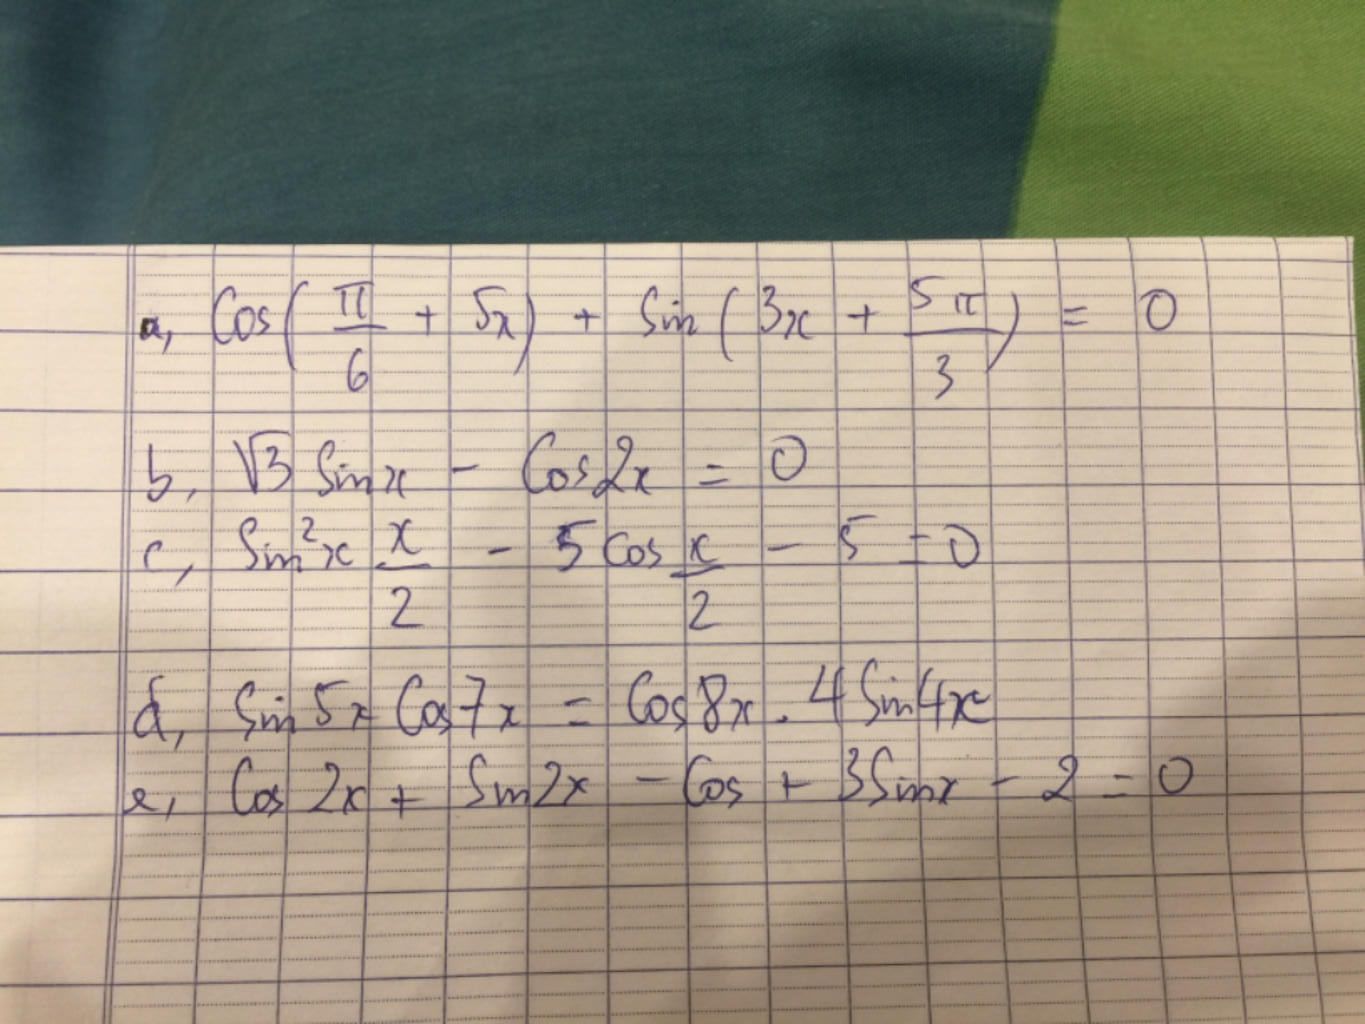 a, Cos(π/6 + 5x) + Sin(3x + 5π/3) = 0
b, √3 Sinx - Cos2x = 0
c, Sin²x x/2 - 5 Cos x/2 - 5 = 0
d, Sin5x Cos7x = Cos8x . 4Sin4x
e, Cos 2x + Sin2x - Cos + 3Sinx - 2 = 0